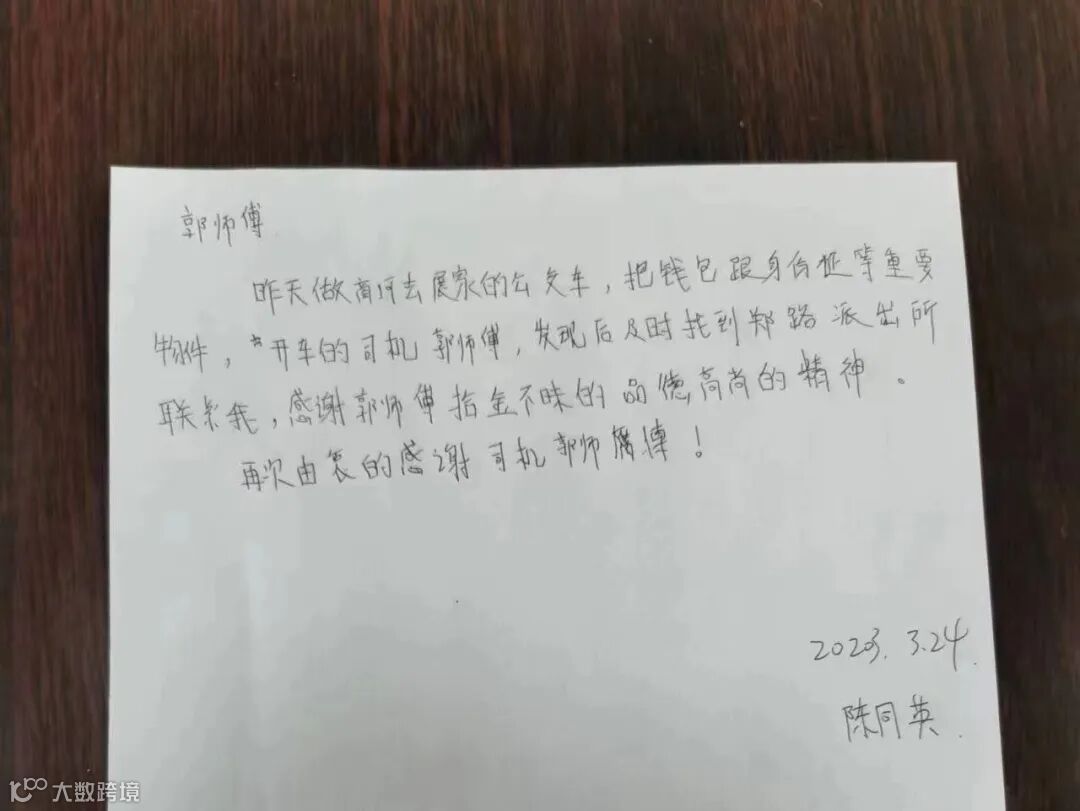 郭师傅
昨天做商河去展家的公交车，把钱包跟身份证等重要
物件，开车的司机郭师傅，发现后及时找到郑路派出所
联系我，感谢郭师傅拾金不昧的品德高尚的精神。
再次由衷的感谢司机郭师傅！
2023.3.24.
陈同英.
大数跨境